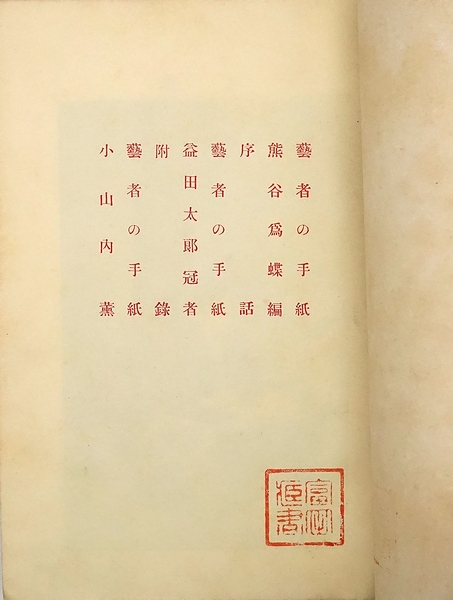 藝者の手紙
熊谷爲蝶編
序話
藝者の手紙
益田太郞冠者
附錄
藝者の手紙
小山內薰